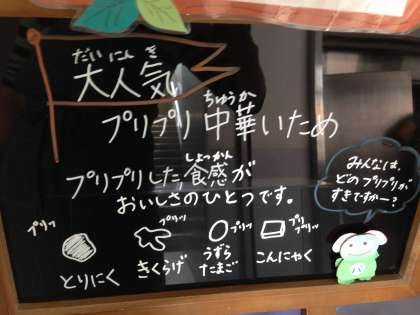 だい にん き
大人気
ちゅうか
プリプリ 中華いため
しょっかん
プリプリした食感が
おいしさのひとつです。
みんなは、
どのプリプリが
すきですかー?
プリッ
とりにく
プリッ
きくらげ
プリッ
うずら
たまご
プリプリッ
こんにゃく